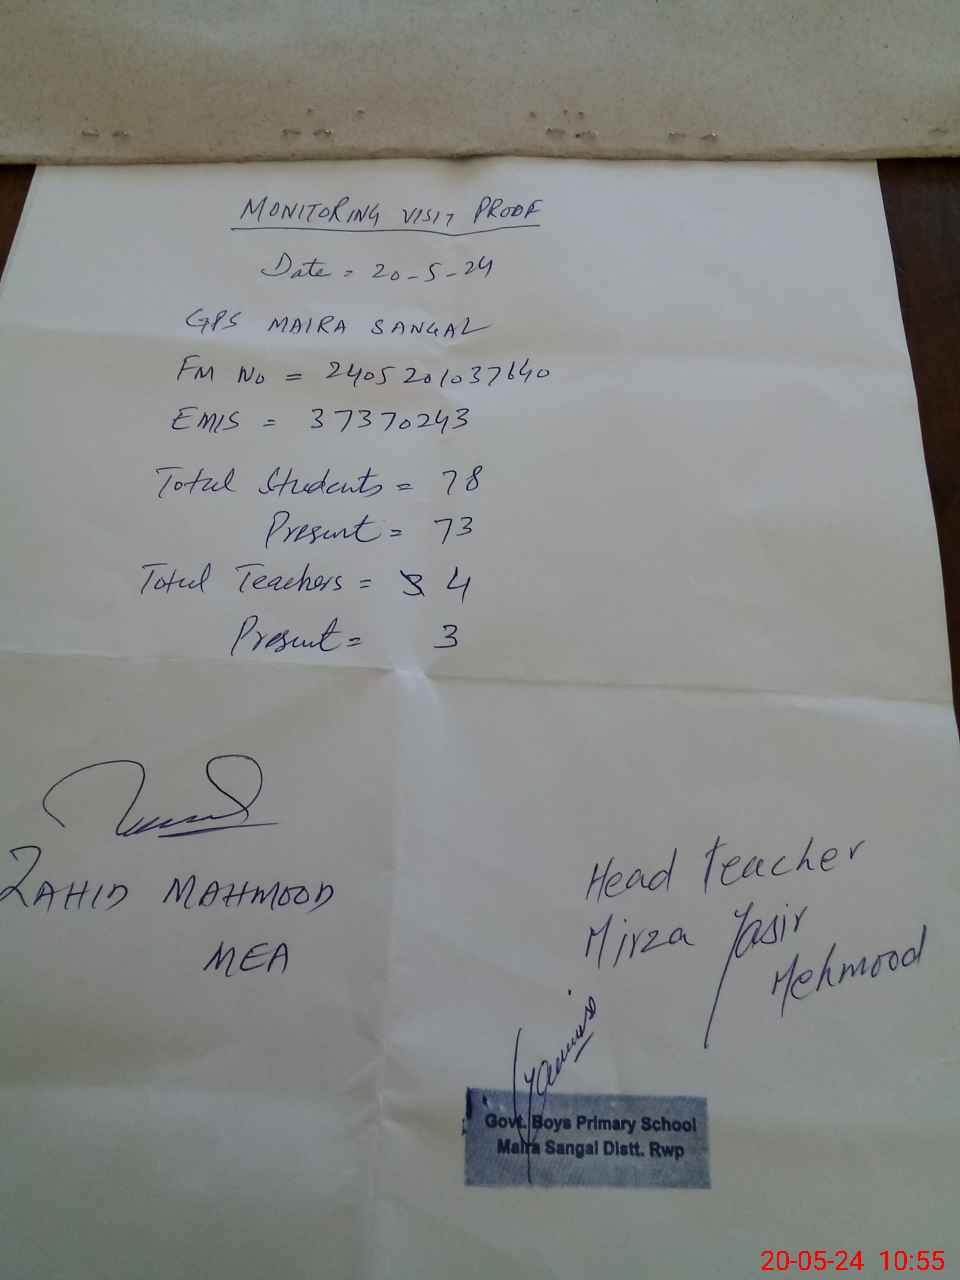 MONITORING VISIT PROOF
Date = 20-5-24
GPS MAIRA SANGAL
FM No = 2405201037640
EMIS = 37370243
Total Students = 78
Present = 73
Total Teachers = 3 4
Present = 3
ZAHID MAHMOOD
MEA
Head Teacher
Mirza Yasir
Mehmood
Govt. Boys Primary School
Maira Sangal Distt. Rwp
20-05-24 10:55